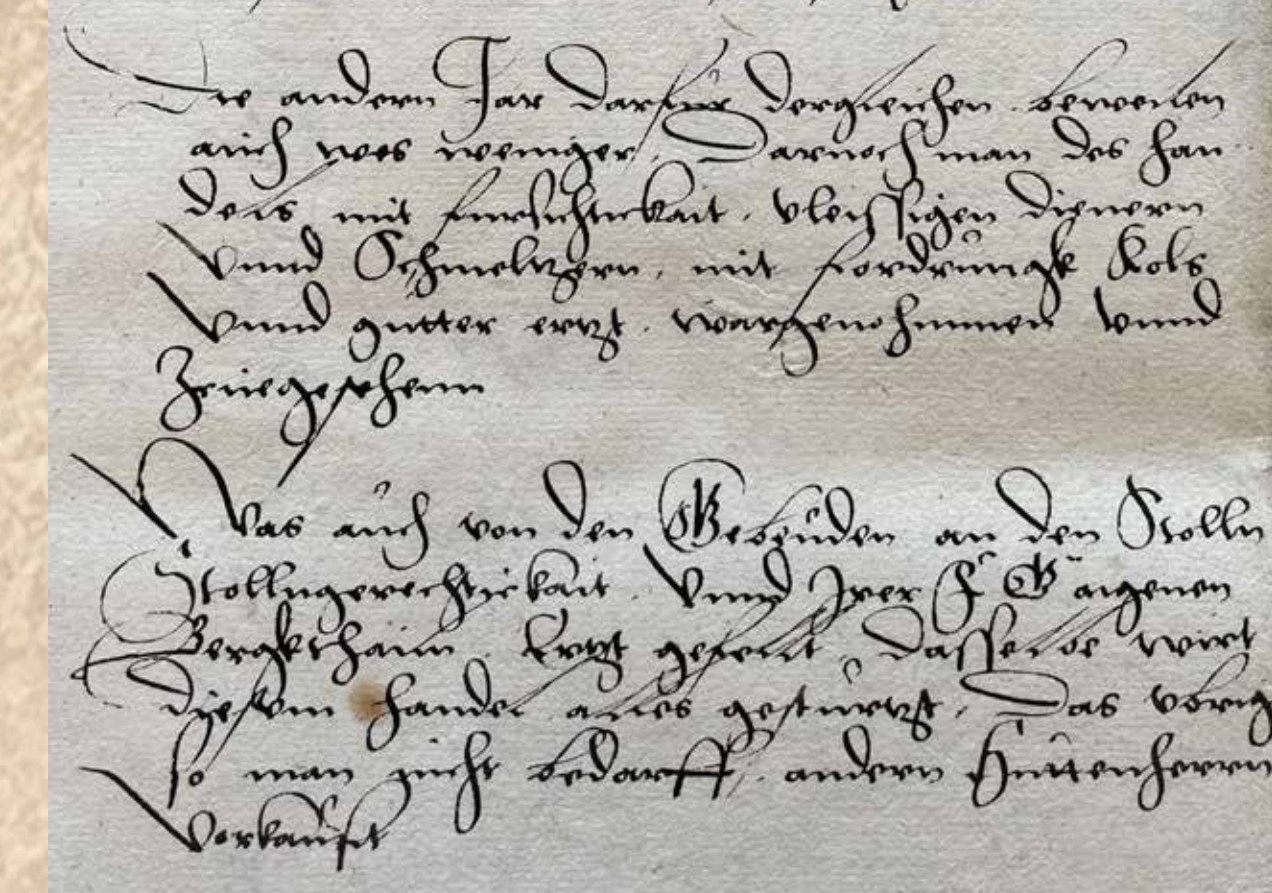 Die andern Jar darfur dergleichen beweilen
auch wes weniger, Darnoch man des han
dels mit fursichtickait, vleissigen dienern
Vnnd Schmeltzern, mit fordrungk Kols
Vnnd gutter ertzt, wargenohmmen vnnd
Zcuegesehenn
Was auch von den Gebeuden an den Stolln
Stollngerechtickait, Vnnd Irer F G aigenen
Bergkthailn, Ertzt gefellt, Dasselbe wirt
diesem handel alles gesturtzt, Das vbrig
so man nicht bedarff, andern Huttenherrn
Vorkaufft